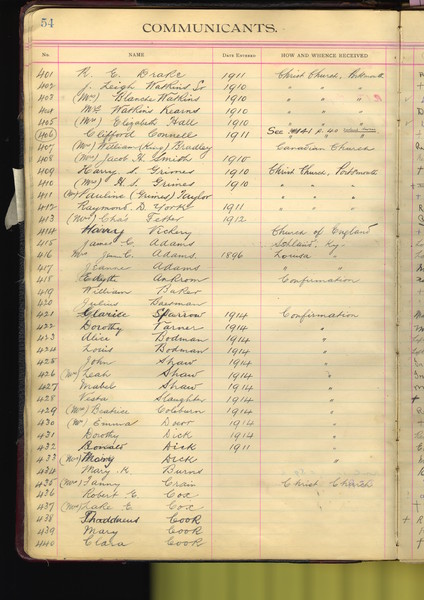 54
COMMUNICANTS.
No. NAME DATE ENTERED HOW AND WHENCE RECEIVED
401 R. E. Drake 1911 Christ Church, Portsmouth
402 J. Leigh Watkins Sr 1910 " " "
403 (Mrs) Blanche Watkins 1910 " " "
404 Watkins Kearns 1910 " " "
405 (Mrs) Elizabeth Hall 1910 " " "
406 Clifford Connell 1911 See #1141 p. 40
407 (Mrs) William (King) Bradley Canadian Church
408 (Mrs) Jacob H. Smith 1910 " "
409 Harry S. Grimes 1910 Christ Church, Portsmouth
410 (Mrs) H. S. Grimes 1910 " " "
411 (Mrs) Pauline (Grimes) Taylor " " "
412 Raymond D. York 1911 " " "
413 (Mrs) Chas Fetter 1912
414 Harry Vickery Church of England
415 James C. Adams Ashland, Ky.
416 Mrs Jas. C. Adams. 1896 Louisa "
417 Jeanne Adams " "
418 Edyth Ankrom Confirmation
419 William Baker
420 Julius Bauman
421 Clarice Sparrow 1914 Confirmation
422 Dorothy Varner 1914 "
423 Alice Bodman 1914 "
424 Lois Bodman 1914 "
425 John Shaw 1914 "
426 (Mrs) Leah Shaw 1914 "
427 Mabel Shaw 1914 "
428 Vesta Slaughter 1914 "
429 (Mrs) Beatrice Coleburn 1914 "
430 (Mrs) Emma 1914 "
431 Dorothy Dick 1914 "
432 Donald Dick 1911 "
433 (Mrs) Mary Dick "
434 Mary K. Burns
435 (Mrs) Fanny Crain Christ Church
436 Robert E. Cox "
437 (Mrs) Cox
438 Thaddeus Cook
439 Mary Cook
440 Clara Cook